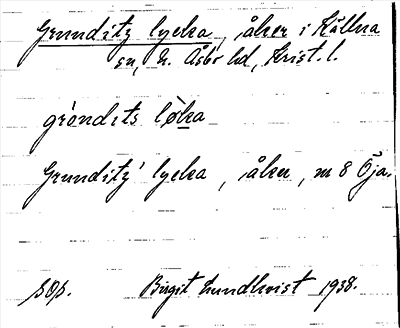 Grunditz lycka, åker i Källna
sn, N. Åsbo hd, Krist. l.
gròndits lø̀ka
Grunditz' lycka, åker, m 8 Öja.
sep. Birgit Lundkvist 1938.